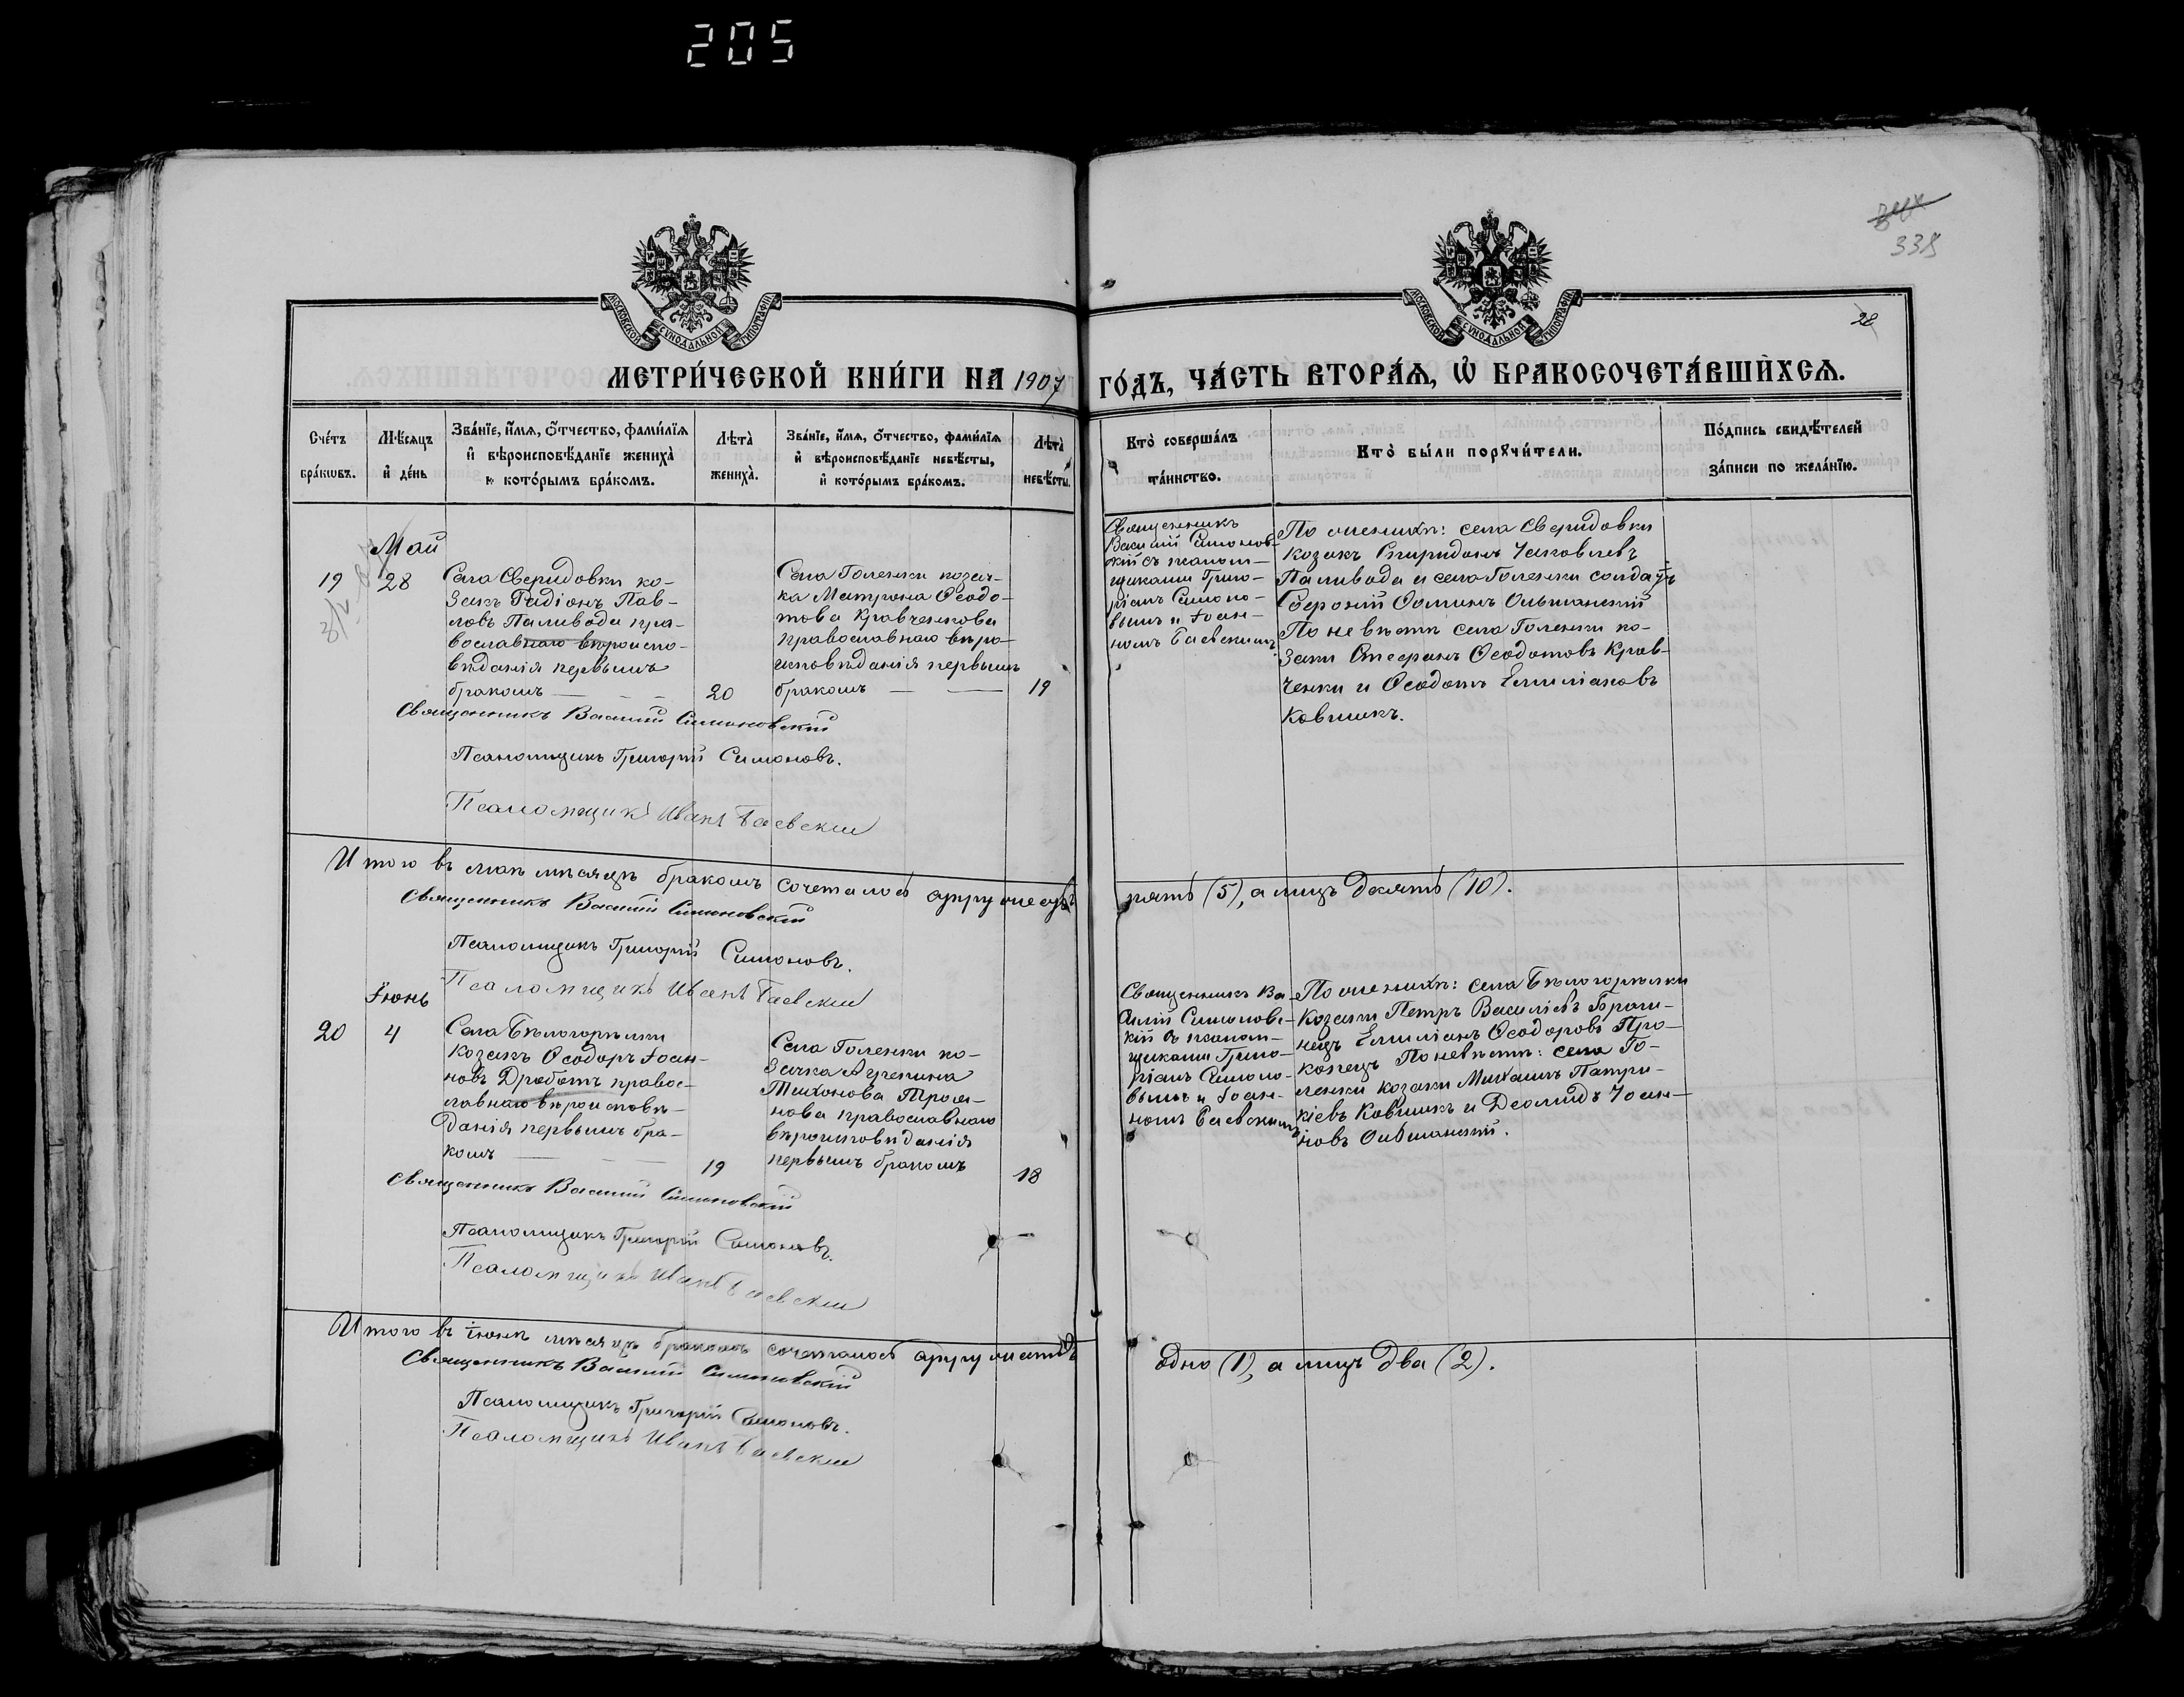 205
338
28
МОСКОВСКОЙ СѴНОДАЛЬНОЙ ТИПОГРАФІИ
МОСКОВСКОЙ СѴНОДАЛЬНОЙ ТИПОГРАФІИ
МЕТРИ́ЧЕСКОЙ КНИ́ГИ НА 1907 ГО́ДЪ, ЧА́СТЬ ВТОРА́Ѧ, Ѡ҆ БРАКОСОЧЕТА́ВШИХСѦ.
Сче́тъ
бра́кѡвъ.
Мѣ́сѧцъ
и҆ де́нь
Зва́нїе, и҆́мѧ, ѻ҆́тчество, фами́лїѧ
и҆ вѣроисповѣ́данїе жениха̀
и҆ кото́рымъ бра́комъ.
Лѣта̀
жениха̀.
Зва́нїе, и҆́мѧ, ѻ҆́тчество, фами́лїѧ
и҆ вѣроисповѣ́данїе невѣ́сты,
и҆ кото́рымъ бра́комъ.
Лѣта̀
невѣ́сты.
Кто̀ соверша́лъ
та́инство.
Кто̀ бы́ли порꙋчи́тели.
По́дпись свидѣ́телей
за́писи по жела́нїю.
Май
19
28
Села Свердовки ко-
закъ Радіонъ Пав-
ловъ Паливода пра-
вославнаго вѣроиспо-
вѣданія первымъ
бракомъ — — —
20
Села Голенки козач-
ка Матрона Ѳеодо-
това Кравченкова
православнаго вѣро-
исповѣданія первымъ
бракомъ — —
19
Священникъ
Василій Симонов-
скій съ псалом-
щиками Григо-
ріемъ Симоно-
вымъ и Іоан-
номъ Баевскимъ
По женихѣ: села Свердовки
козакъ Спиридонъ Іаковлевъ
Паливода и села Голенки солдатъ
Ѳоминъ Ольшанскій
По невѣстѣ села Голенки ко-
заки Стефанъ Ѳеодотовъ Крав-
ченки и Ѳеодотъ Емиліановъ
Ковшикъ.
Священникъ Василій Симоновскій
Псаломщикъ Григорій Симоновъ.
Псаломщикъ Иванъ Баевскій
Итого въ маѣ мѣсяцѣ бракомъ сочеталось супружествъ пять (5), а лицъ десять (10).
Священникъ Василій Симоновскій
Псаломщикъ Григорій Симоновъ.
Псаломщикъ Иванъ Баевскій
Іюнь
20
4
Села Бѣлогорѣлки
козакъ Ѳеодоръ Іоан-
новъ Дроботъ правос-
лавнаго вѣроисповѣ-
данія первымъ бра-
комъ — — —
19
Села Голенки ко-
зачка Агрепина
Тихонова Троя-
нова православнаго
вѣроисповѣданія
первымъ бракомъ
18
Священникъ Ва-
силій Симоновс-
кій съ псалом-
щиками Григо-
ріемъ Симоно-
вымъ и Іоан-
номъ Баевскимъ
По женихѣ: села Бѣлогорѣлки
козаки Петръ Василіевъ Браги-
нецъ Емиліанъ Ѳеодоровъ Про-
копецъ По невѣстѣ: села Го-
ленки козаки Михаилъ Патри-
кіевъ Ковшикъ и Деомидъ Іоан-
новъ Ольшанскій.
Священникъ Василій Симоновскій
Псаломщикъ Григорій Симоновъ.
Псаломщикъ Иванъ Баевскій
Итого въ іюнѣ мѣсяцѣ бракомъ сочеталось супружествъ одно (1), а лицъ два (2).
Священникъ Василій Симоновскій
Псаломщикъ Григорій Симоновъ.
Псаломщикъ Иванъ Баевскій